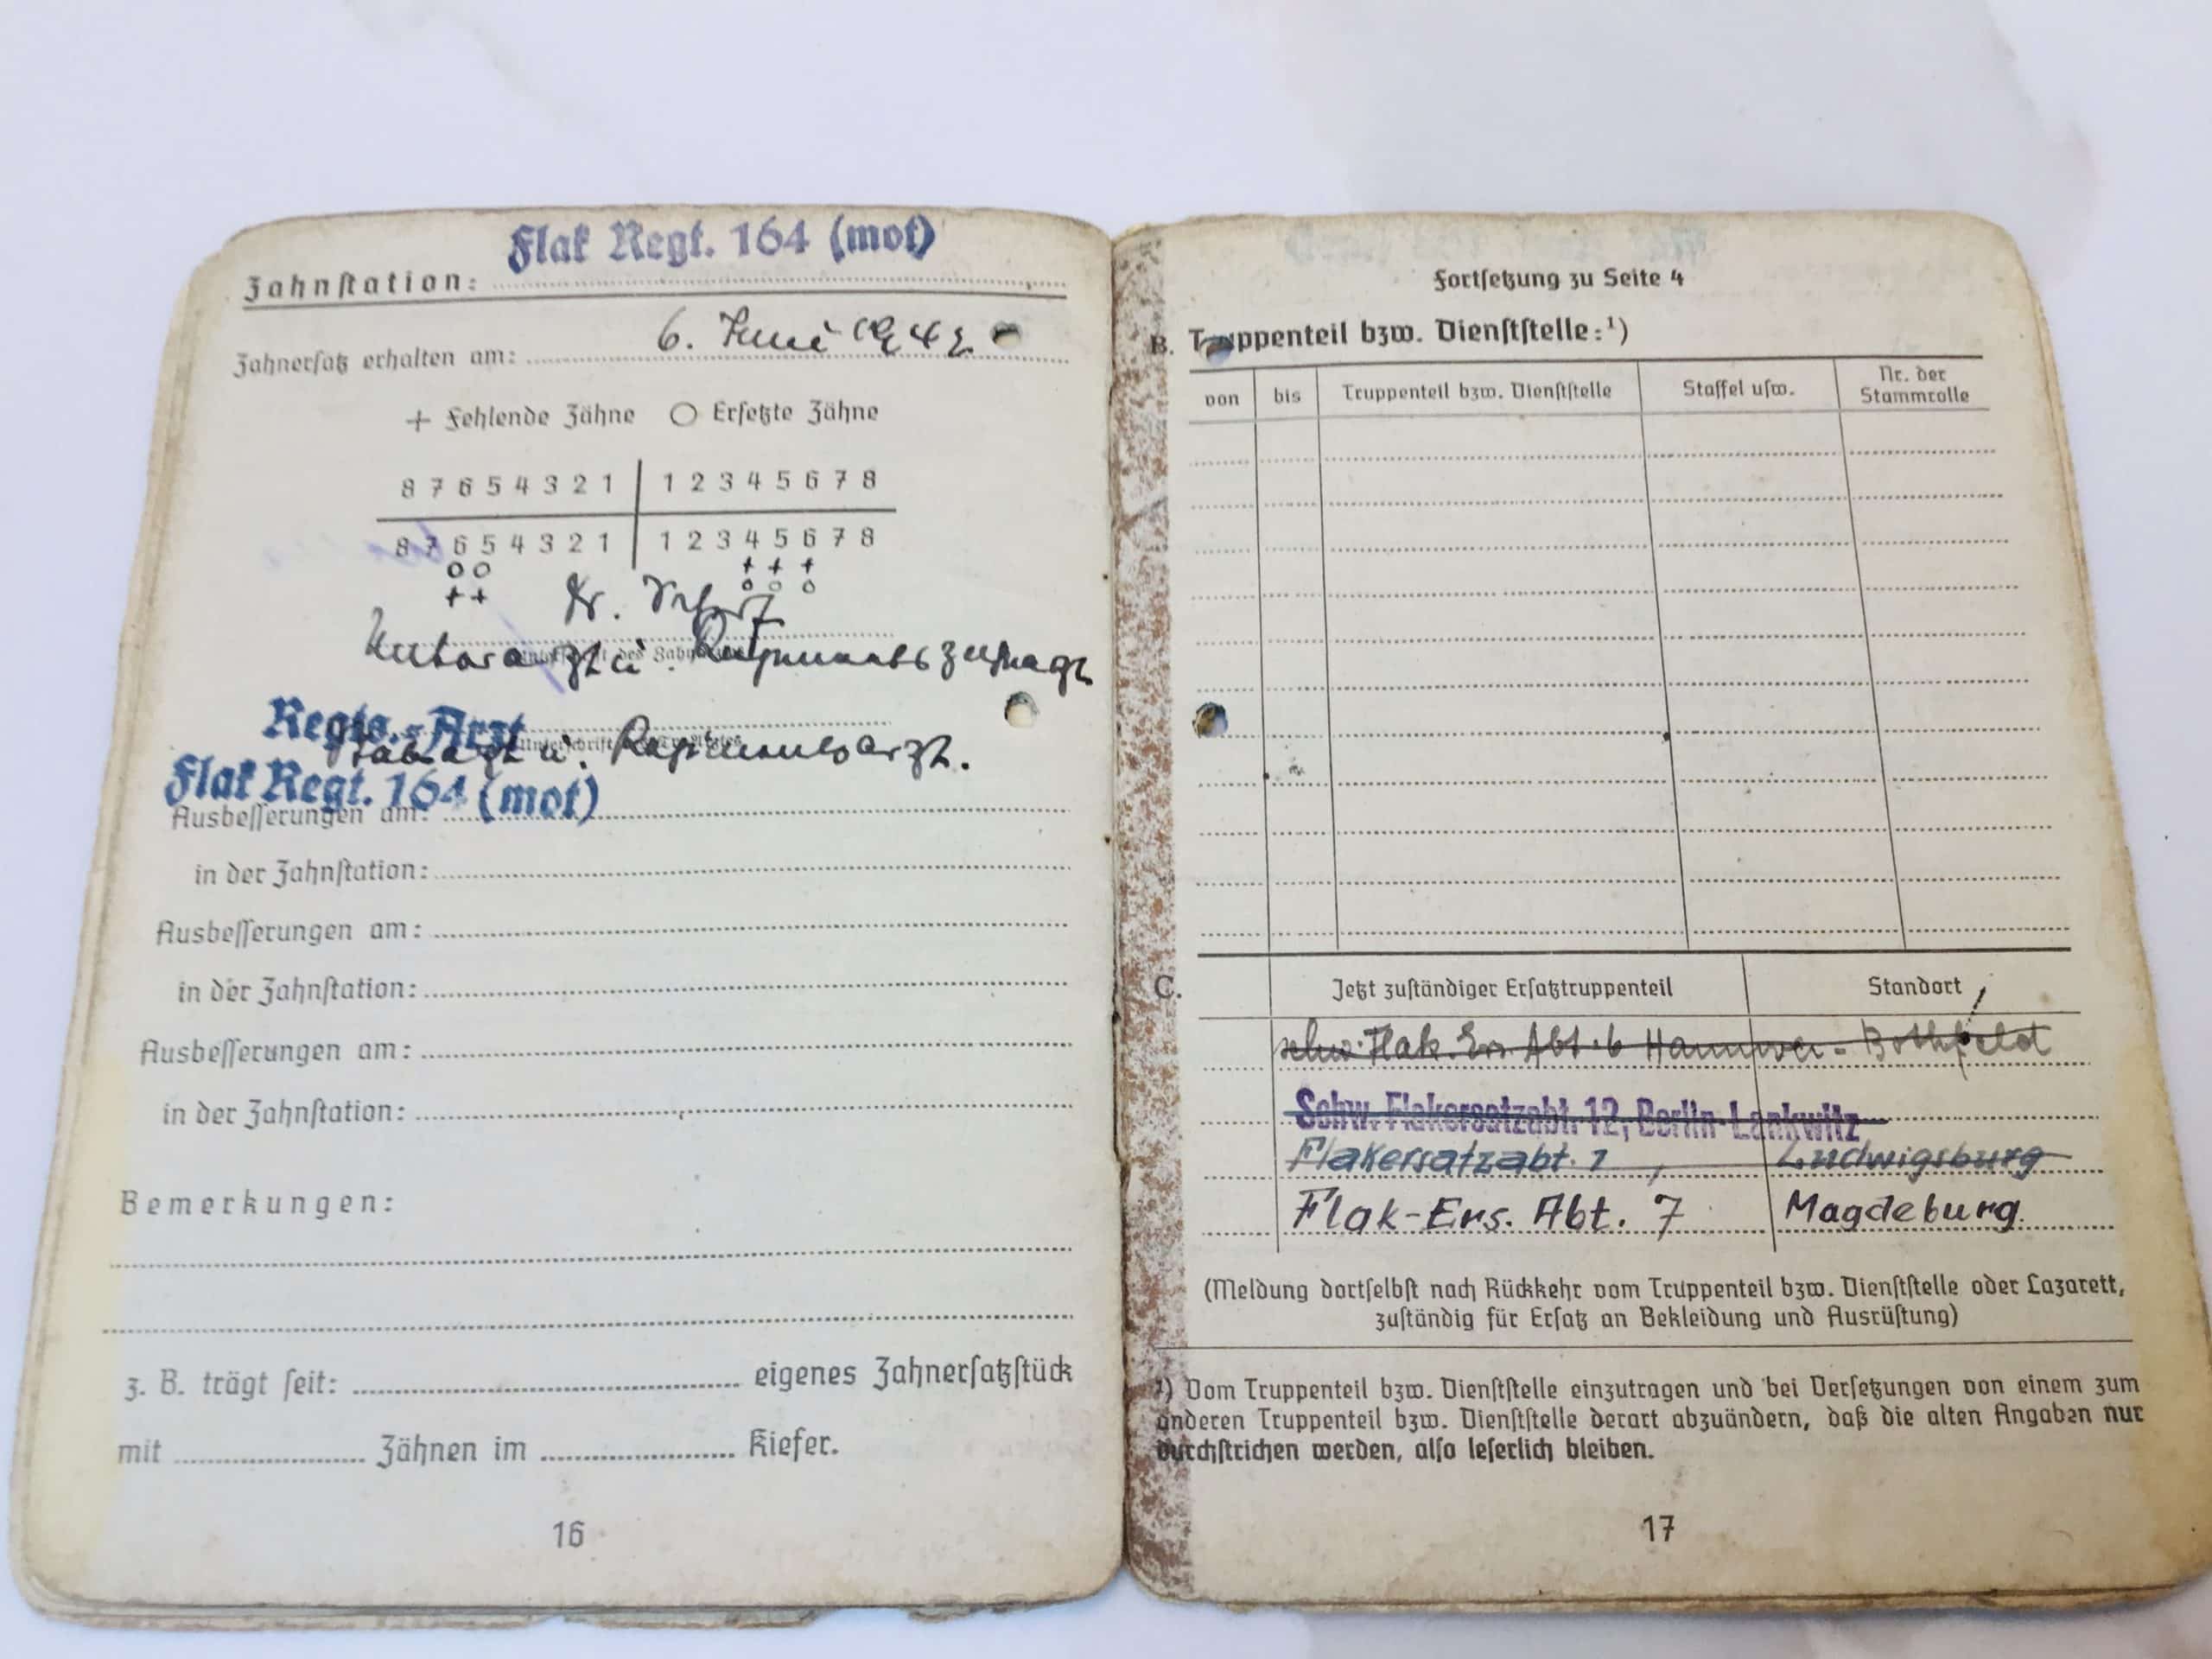 Flak Regt. 164 (mot)
Zahnstation:
Zahnersatz erhalten am: 6. Juni 1942
+ Fehlende Zähne ○ Ersetzte Zähne
8 7 6 5 4 3 2 1 | 1 2 3 4 5 6 7 8
8 7 6 5 4 3 2 1 | 1 2 3 4 5 6 7 8
+ + +
o o o o o
+ + Dr.
u. Regimentszahnarzt
Regts.-Arzt
Stabsarzt u. Regimentsarzt.
Flak Regt. 164 (mot)
Ausbesserungen am:
in der Zahnstation:
Ausbesserungen am:
in der Zahnstation:
Ausbesserungen am:
in der Zahnstation:
Bemerkungen:
z. B. trägt seit: eigenes Zahnersatzstück
mit Zähnen im Kiefer.
16
Fortsetzung zu Seite 4
B. Truppenteil bzw. Dienststelle:¹)
von bis Truppenteil bzw. Dienststelle Staffel usw. Nr. der Stammrolle
C. Jetzt zuständiger Ersatztruppenteil Standort
schw. Flak. Ers. Abt. 6 Hannover-Bothfeld
Schw. Flakersatzabt. 12, Berlin-Lankwitz
Flakersatzabt. 1, Ludwigsburg
Flak-Ers. Abt. 7 Magdeburg.
(Meldung dortselbst nach Rückkehr vom Truppenteil bzw. Dienststelle oder Lazarett,
zuständig für Ersatz an Bekleidung und Ausrüstung)
¹) Vom Truppenteil bzw. Dienststelle einzutragen und bei Versetzungen von einem zum
anderen Truppenteil bzw. Dienststelle derart abzuändern, daß die alten Angaben nur
durchstrichen werden, also leserlich bleiben.
17